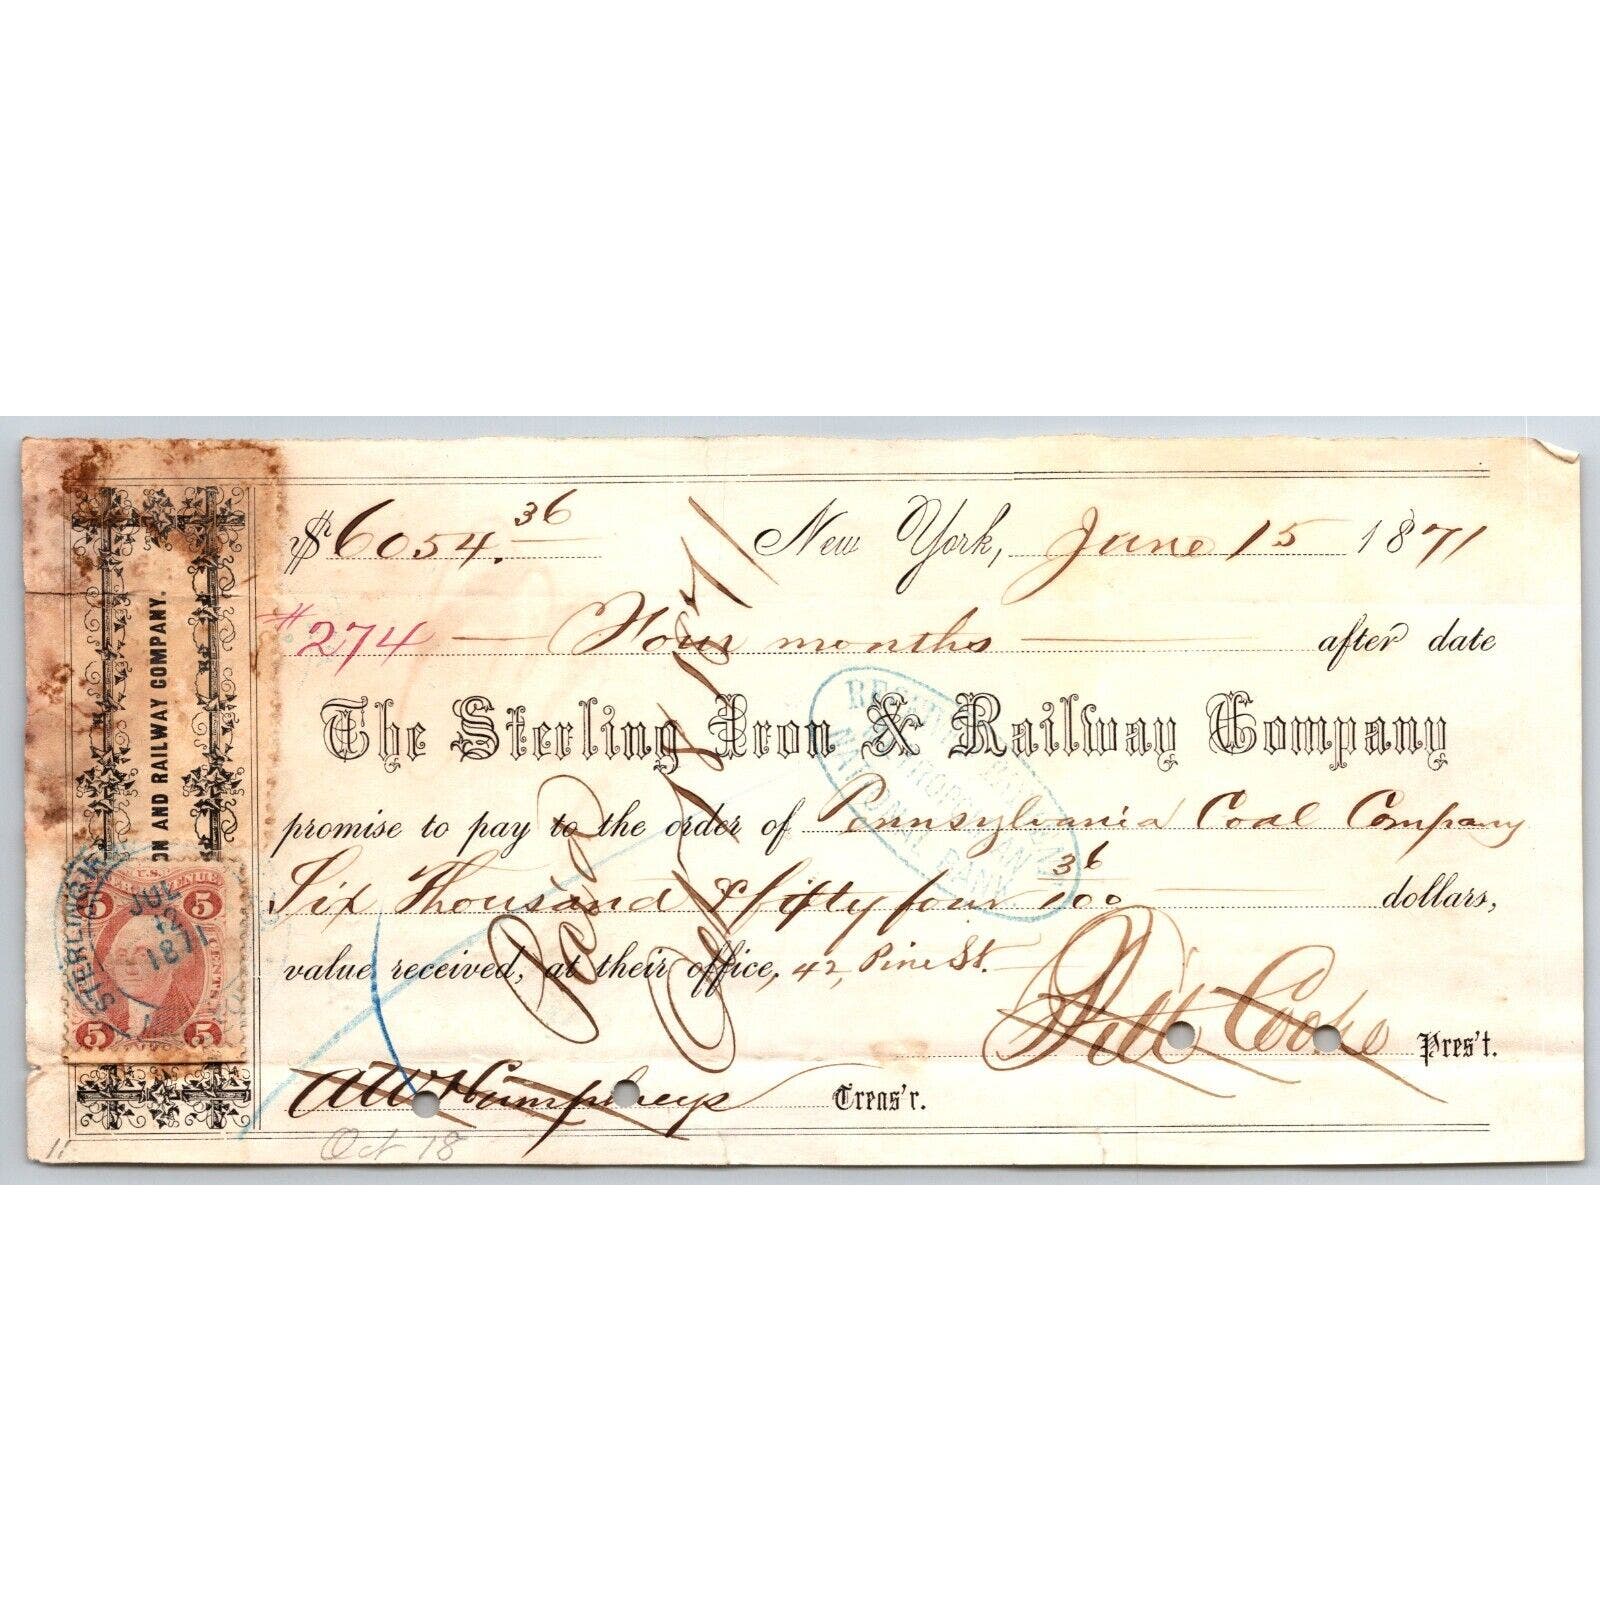 $6054.36 New York, June 15 1871
#274 — Four months — after date
The Sterling Iron & Railway Company
promise to pay to the order of Pennsylvania Coal Company
Six Thousand & fifty four 36/100 dollars,
value received, at their office, 42, Pine St.
Pitt Cooke Pres't.
A W Humphreys Treas'r.
Oct 18
11
Paid
Oct 18 1871
ON AND RAILWAY COMPANY.
5 5
U.S.
CENTS.
5 5
STERLING
JUL
12
1871
METROPOLITAN
NATIONAL BANK